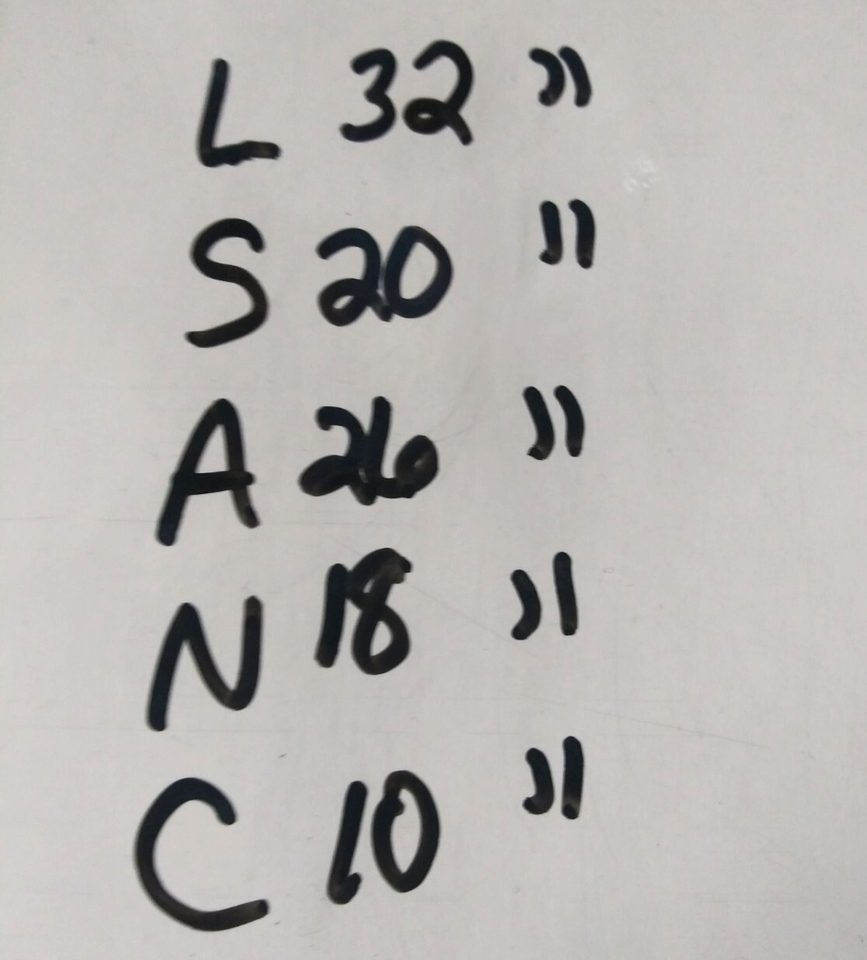 L 32 "
S 20 "
A 26 "
N 18 "
C 10 "